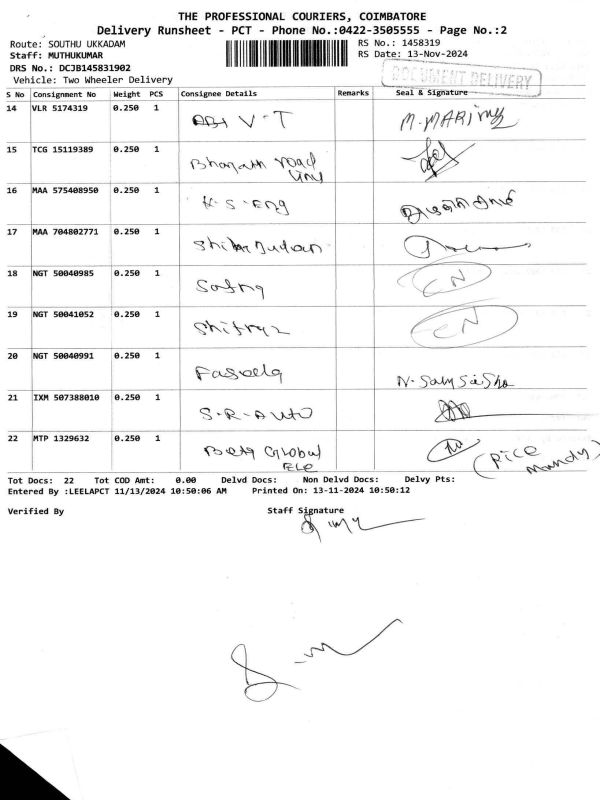 THE PROFESSIONAL COURIERS, COIMBATORE
Delivery Runsheet - PCT - Phone No.:0422-3505555 - Page No.:2
Route: SOUTHU UKKADAM
RS No.: 1458319
Staff: MUTHUKUMAR
RS Date: 13-Nov-2024
DRS No.: DCJB145831902
DOCUMENT DELIVERY
Vehicle: Two Wheeler Delivery
S No Consignment No Weight PCS Consignee Details Remarks Seal & Signature
14 VLR 5174319 0.250 1 V-T M. MARI
15 TCG 15119389 0.250 1 Bharath road
16 MAA 575408950 0.250 1 K-S-Eng
17 MAA 704802771 0.250 1
18 NGT 50040985 0.250 1 CN
19 NGT 50041052 0.250 1 CN
20 NGT 50040991 0.250 1 Faseela N.
21 IXM 507388010 0.250 1 S-R-Auto
22 MTP 1329632 0.250 1 Global (Rice
Ele Mandy)
Tot Docs: 22 Tot COD Amt: 0.00 Delvd Docs: Non Delvd Docs: Delvy Pts:
Entered By :LEELAPCT 11/13/2024 10:50:06 AM Printed On: 13-11-2024 10:50:12
Verified By Staff Signature